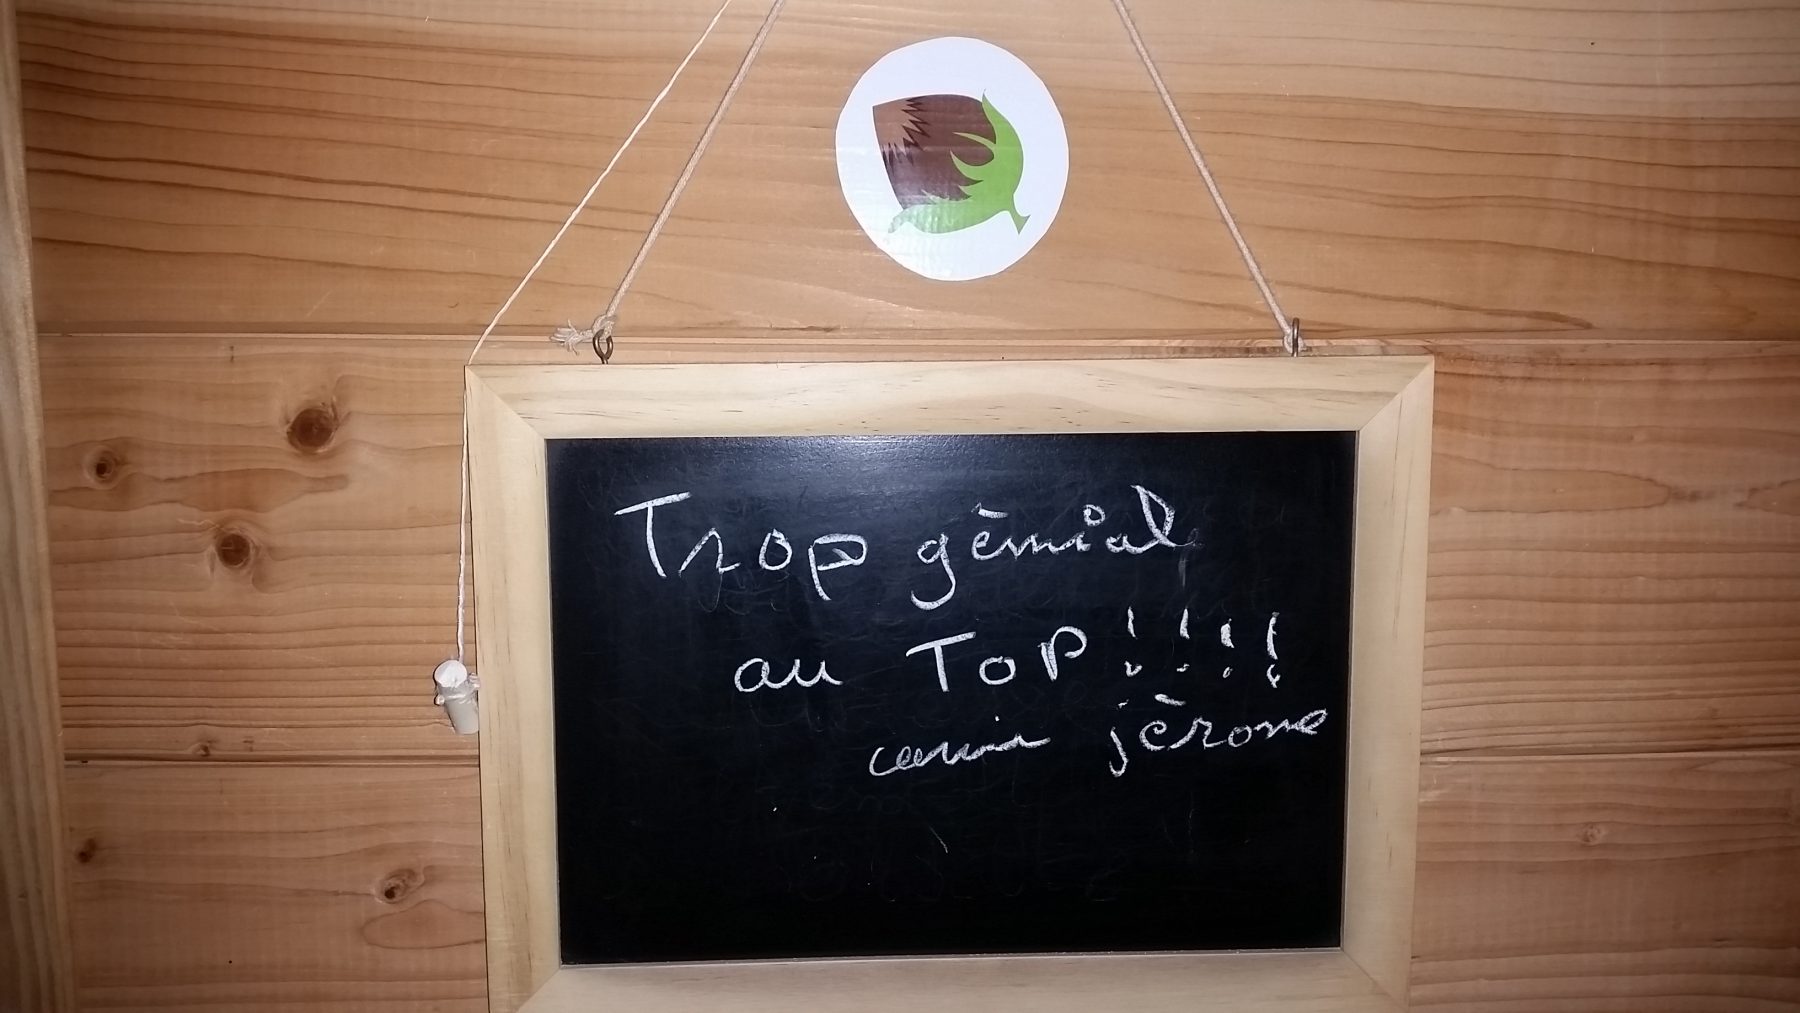 Trop gènial
au ToP !!!!
jèrome